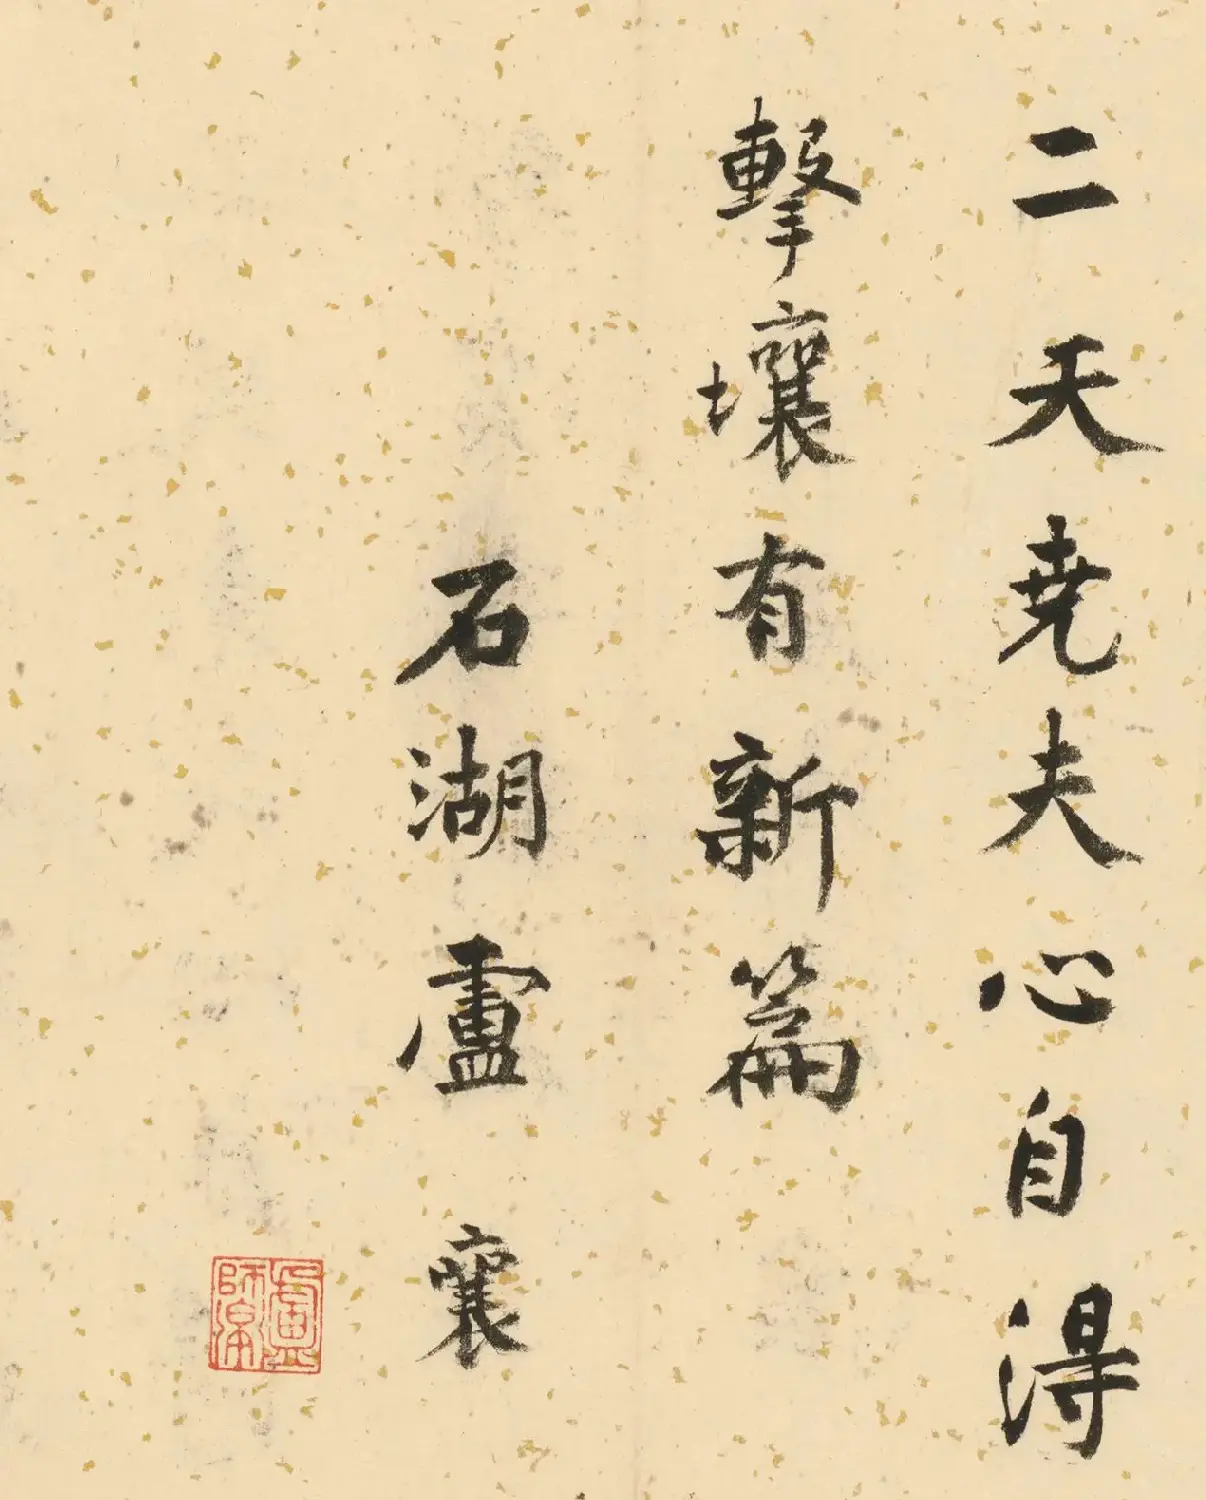 二天堯夫心自得
擊壤有新篇
石湖盧襄
盧師陳